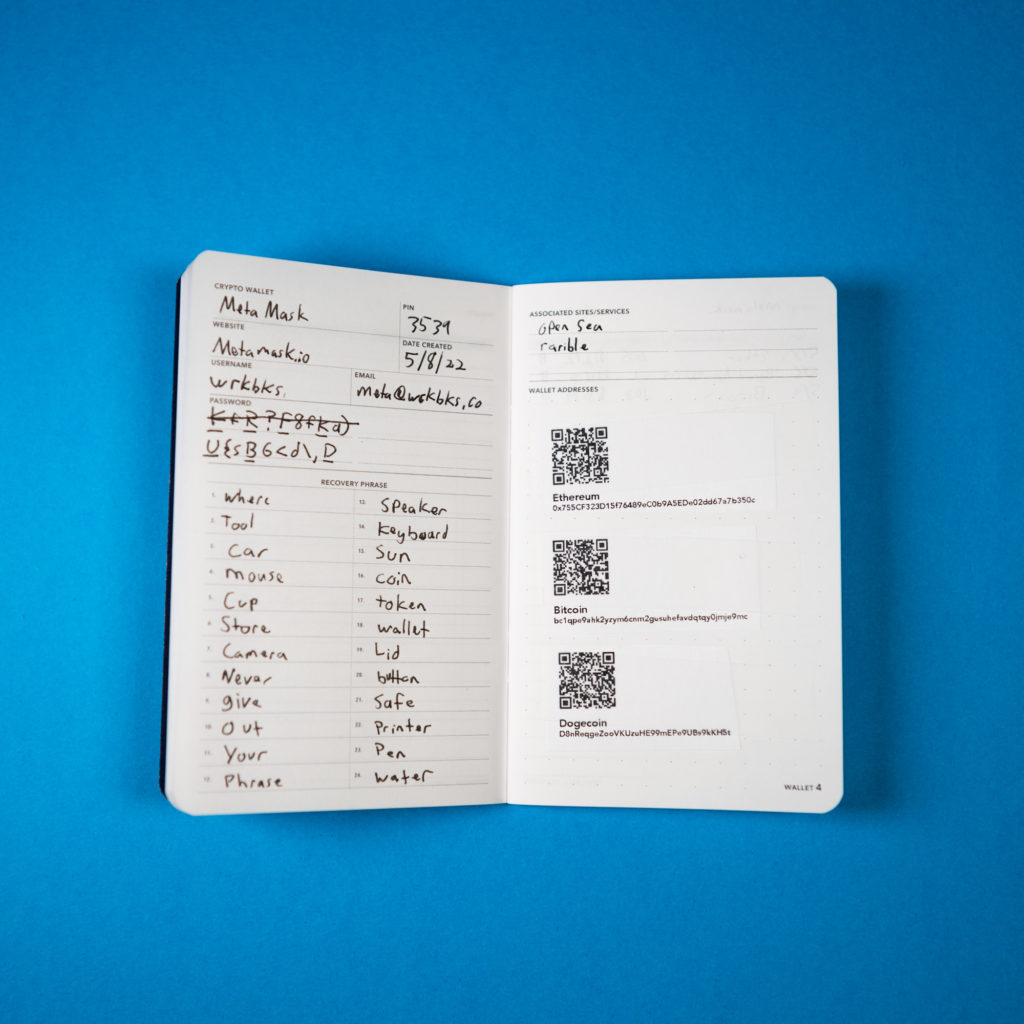 CRYPTO WALLET
Meta Mask
PIN
3539
WEBSITE
Metamask.io
DATE CREATED
5/8/22
USERNAME
wrkbks.
EMAIL
meta@wrkbks.co
PASSWORD
U{sBG<d\,D
RECOVERY PHRASE
1. where
2. Tool
3. Car
4. mouse
5. Cup
6. Store
7. Camera
8. Never
9. give
10. Out
11. Your
12. Phrase
13. Speaker
14. Keyboard
15. Sun
16. coin
17. token
18. wallet
19. Lid
20. button
21. Safe
22. Printer
23. Pen
24. water
ASSOCIATED SITES/SERVICES
Open Sea
rarible
WALLET ADDRESSES
Ethereum
0x755CF323D15f76489eC0b9A5EDe02dd67a7b350c
Bitcoin
bc1qpe9ahk2yzym6cnm2gusuhefavdqtqy0jmje9mc
Dogecoin
D8nReqgeZooVKUzuHE99mEPe9UBs9kKH5t
WALLET 4